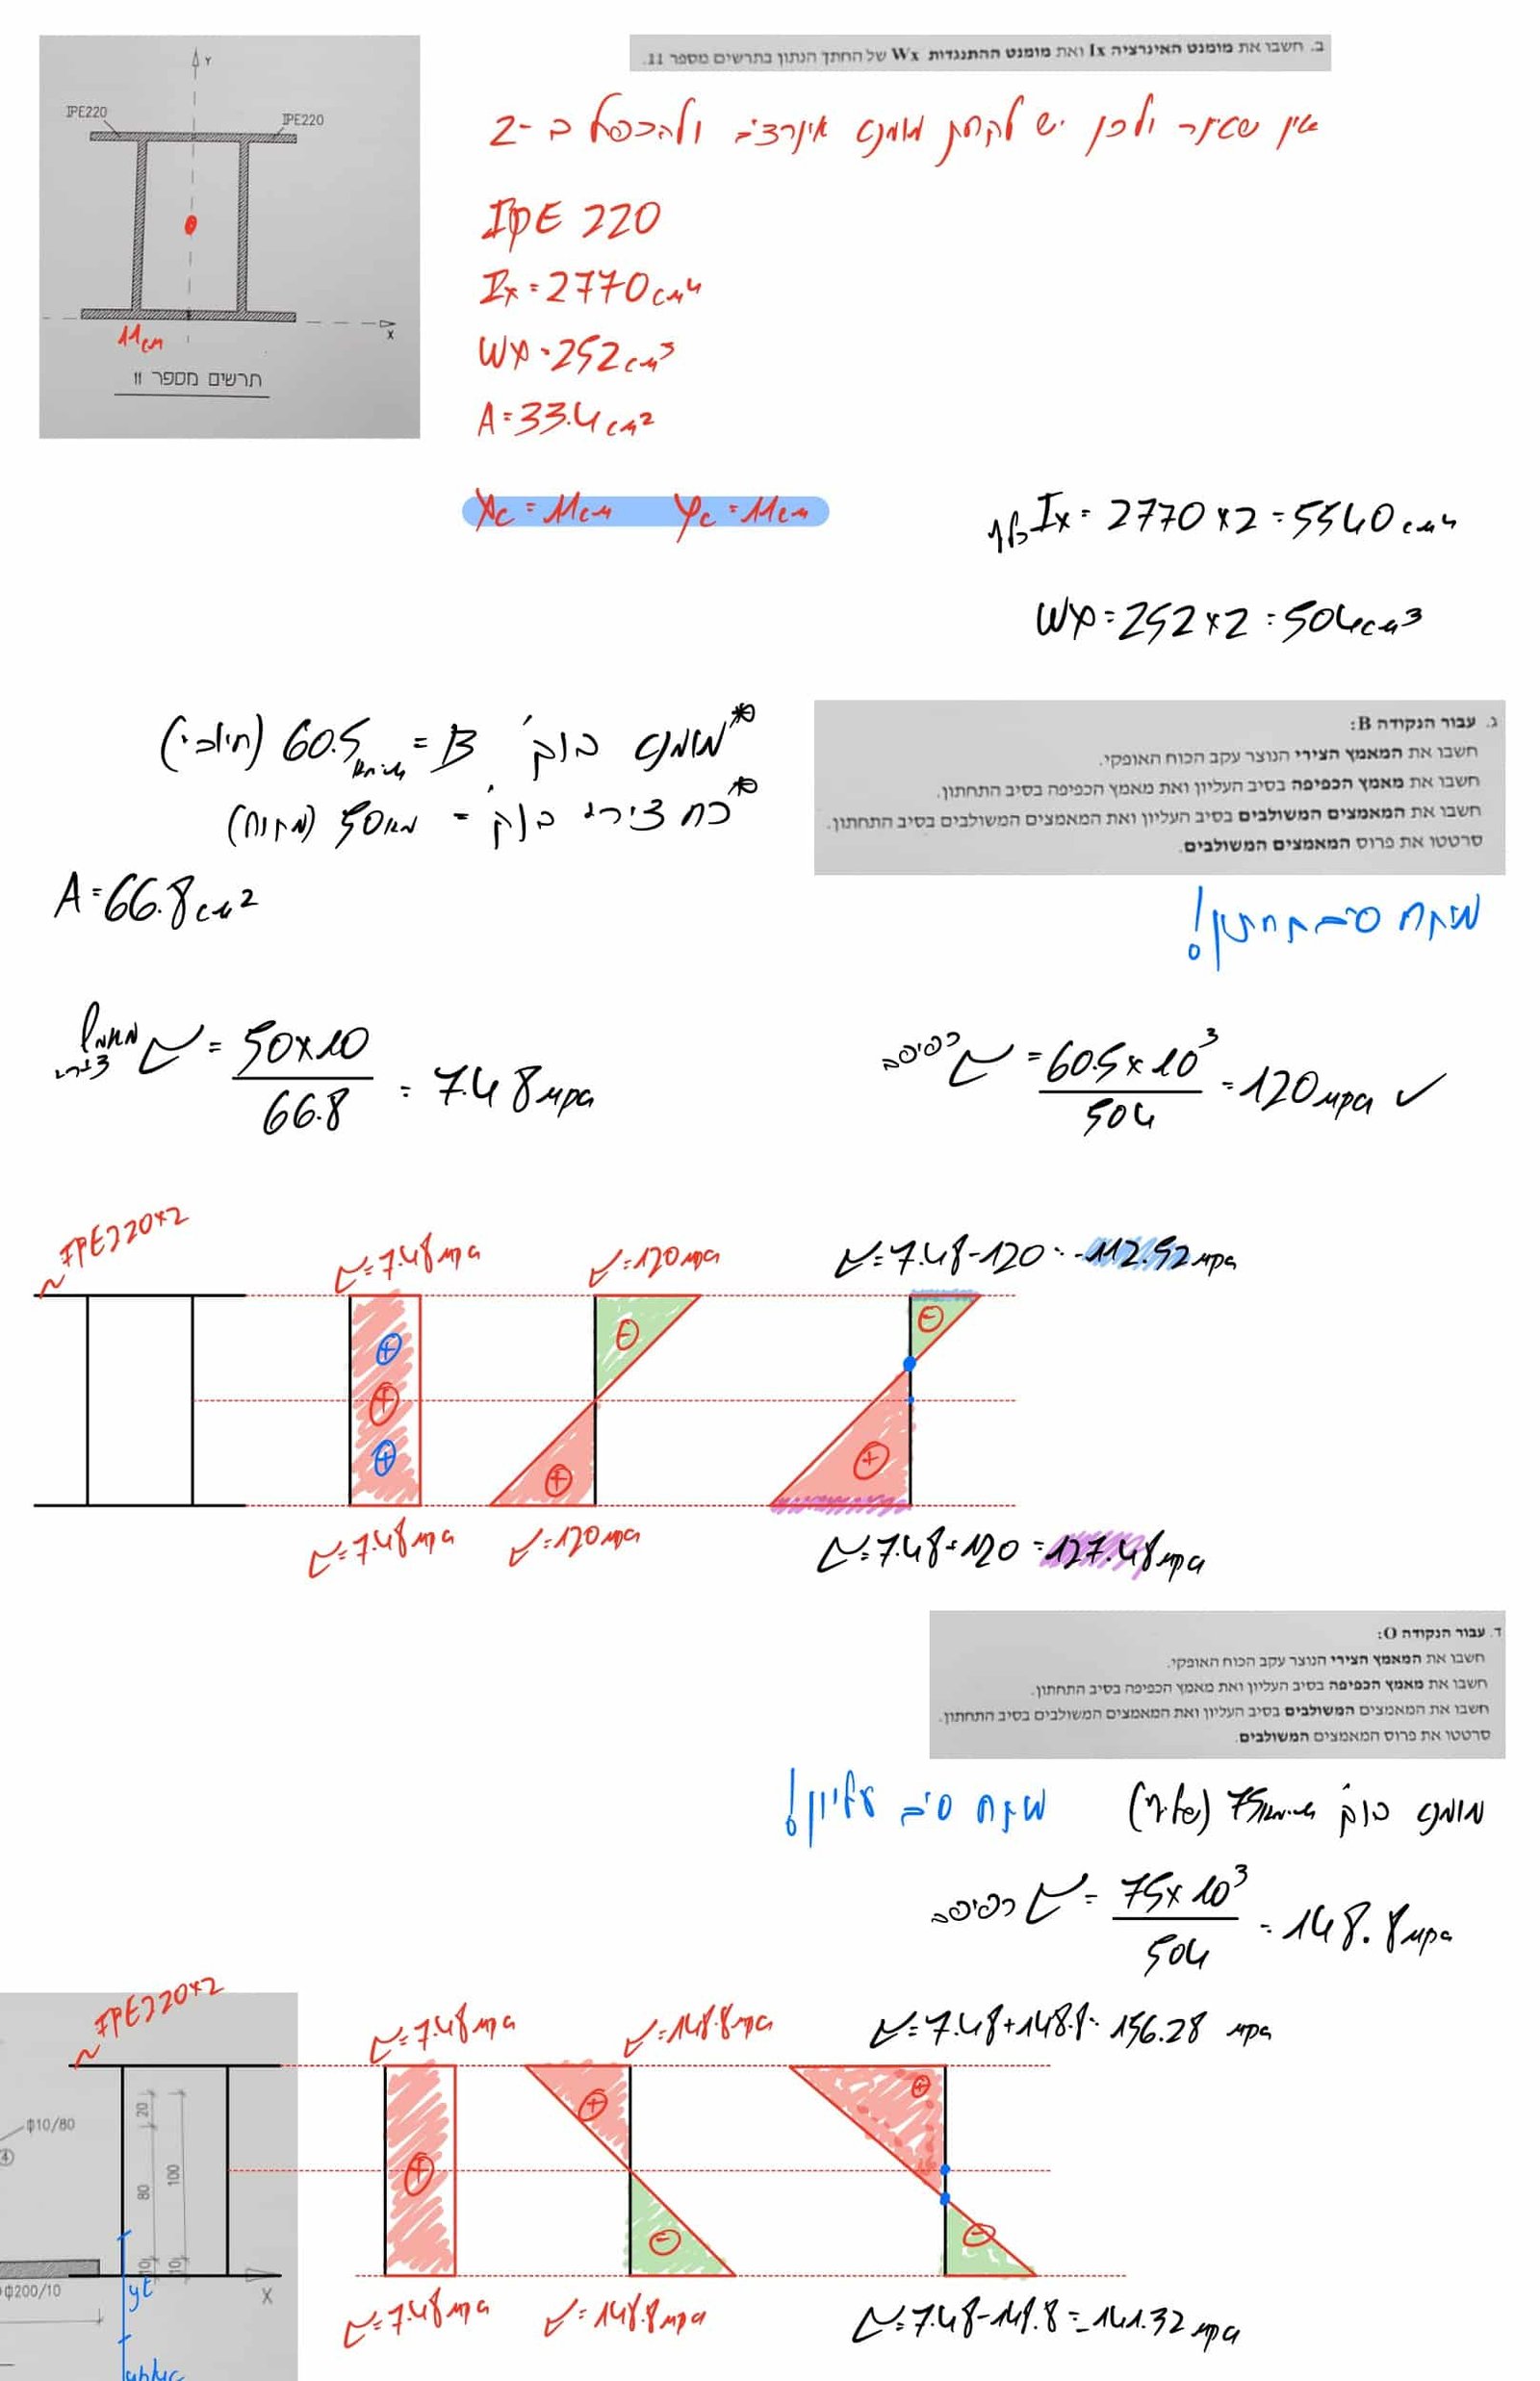 ב. חשבו את מומנט האינרציה Ix ואת מומנט ההתנגדות Wx של החתך הנתון בתרשים מספר 11.
Y
IPE220
IPE220
X
11cm
תרשים מספר 11
אין שטיינר ולכן יש לקחת מומנט אינרציה ולהכפיל ב-2
IPE 220
Ix = 2770cm4
Wx = 252cm3
A = 33.4cm2
Xc = 11cm Yc = 11cm
Ix = 2770 x 2 = 5540cm4
Wx = 252 x 2 = 504cm3
ג. עבור הנקודה B:
חשבו את המאמץ הצירי הנוצר עקב הכוח האופקי.
חשבו את מאמץ הכפיפה בסיב העליון ואת מאמץ הכפיפה בסיב התחתון.
חשבו את המאמצים המשולבים בסיב העליון ואת המאמצים המשולבים בסיב התחתון.
סרטטו את פרוס המאמצים המשולבים.
*מומנט בנק' B = 60.5 (חיובי)
*כח צירי בנק' = 50 (מתוח)
A = 66.8cm2
מתוח סיב תחתון!
מאמץ צירי = 50x10 / 66.8 = 7.48mpa
כפיפה = 60.5 x 10³ / 504 = 120mpa ✓
IPE220x2
= 7.48mpa
= 120mpa
= 7.48-120 = -112.52mpa
+
+
+
-
+
-
+
= 7.48mpa
= 120mpa
= 7.48+120 = 127.48mpa
ד. עבור הנקודה O:
חשבו את המאמץ הצירי הנוצר עקב הכוח האופקי.
חשבו את מאמץ הכפיפה בסיב העליון ואת מאמץ הכפיפה בסיב התחתון.
חשבו את המאמצים המשולבים בסיב העליון ואת המאמצים המשולבים בסיב התחתון.
סרטטו את פרוס המאמצים המשולבים.
מומנט בנק' 75 (שלילי)
מתוח סיב עליון!
כפיפה = 75x10³ / 504 = 148.8mpa
IPE220x2
= 7.48mpa
= 148.8mpa
= 7.48+148.8 = 156.28 mpa
ф10/80
4
20
80
100
10
10
ф200/10
X
yt
+
+
-
+
-
= 7.48mpa
= 148.8mpa
= 7.48-148.8 = -141.32mpa